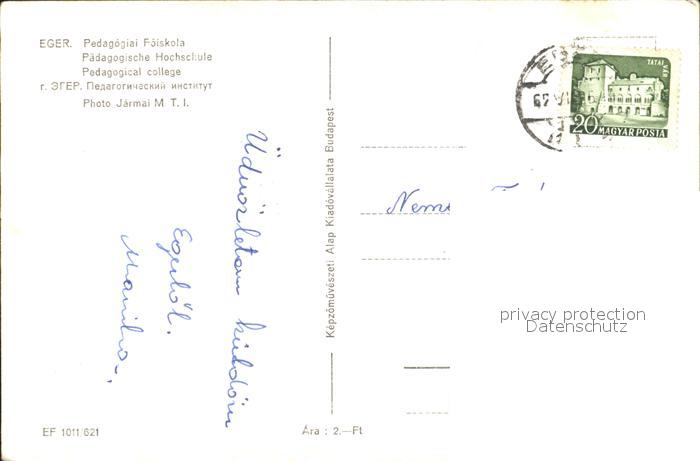 EGER. Pedagógiai Főiskola
Pädagogische Hochschule
Pedagogical college
г. ЭГЕР. Педагогический институт
Photo Jármai M T. I.
Üdvözletem küldöm
Egerből.
Képzőművészeti Alap Kiadóvállalata Budapest
TATAI VÁR
20 MAGYAR POSTA
privacy protection
Datenschutz
EF 1011/621
Ára : 2.—Ft